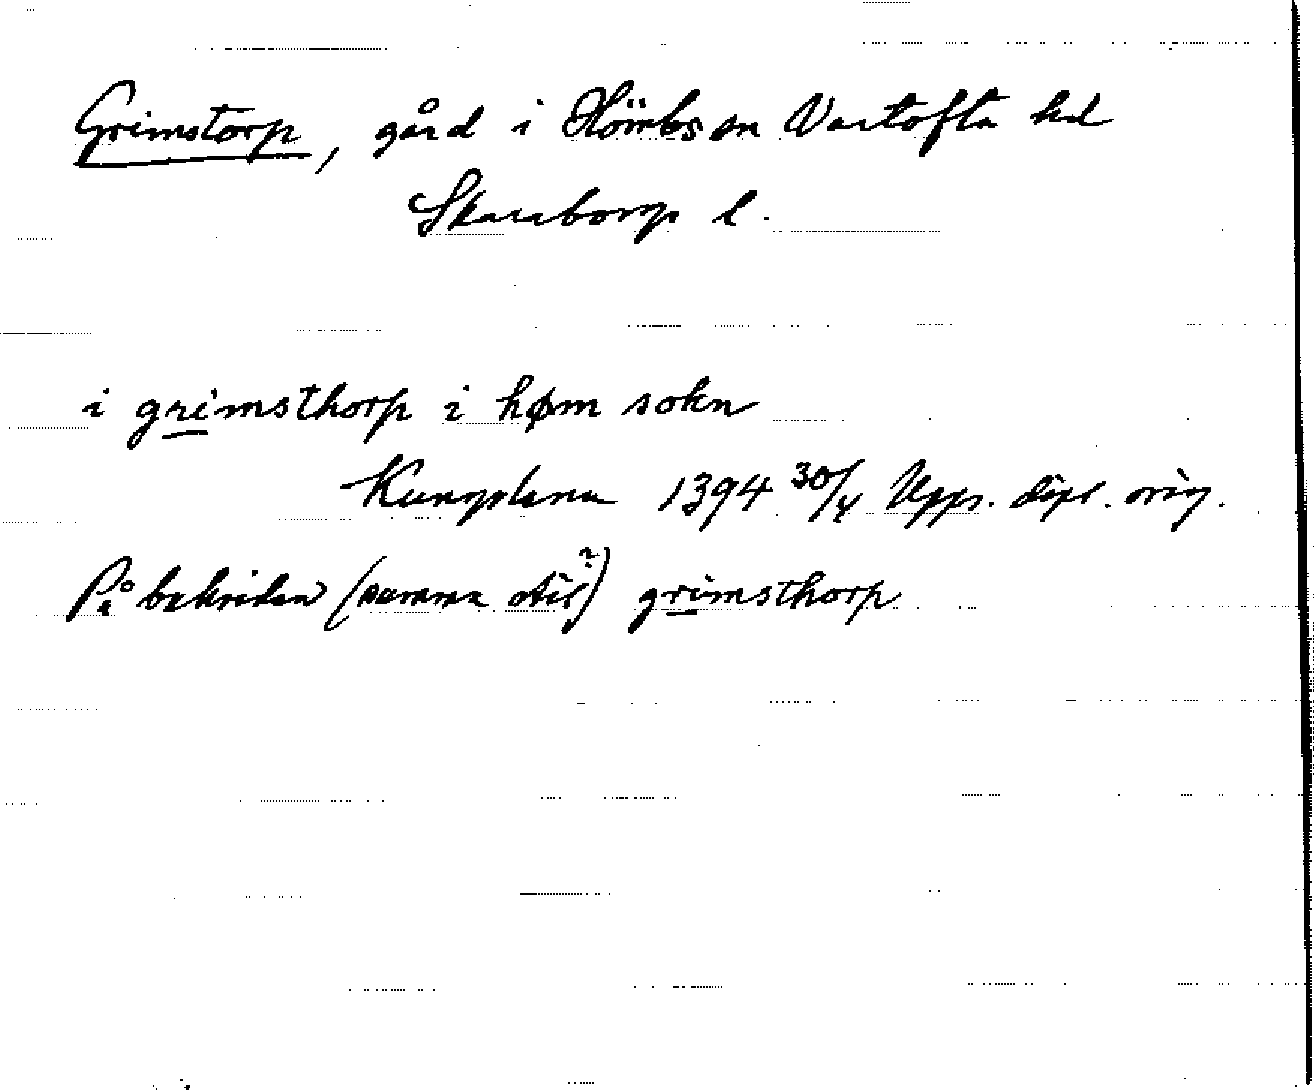 Grimstorp, gård i Hömbs sn Vartofta hd
Skaraborgs l.
i grimsthorp i høm sokn
Kungslena 1394 30/4 Upps. dipl. orig.
På baksidan (samma stil?) grimsthorp